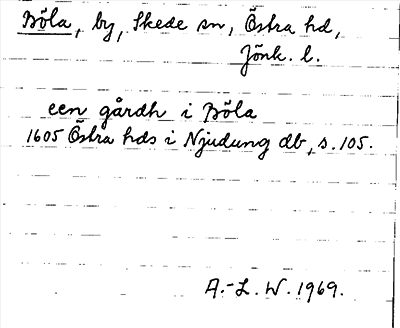 Böla, by, Skede sn, Östra hd,
Jönk. l.
een gårdh i Böla
1605 Östra hds i Njudung db, s. 105.
A.-L. W. 1969.